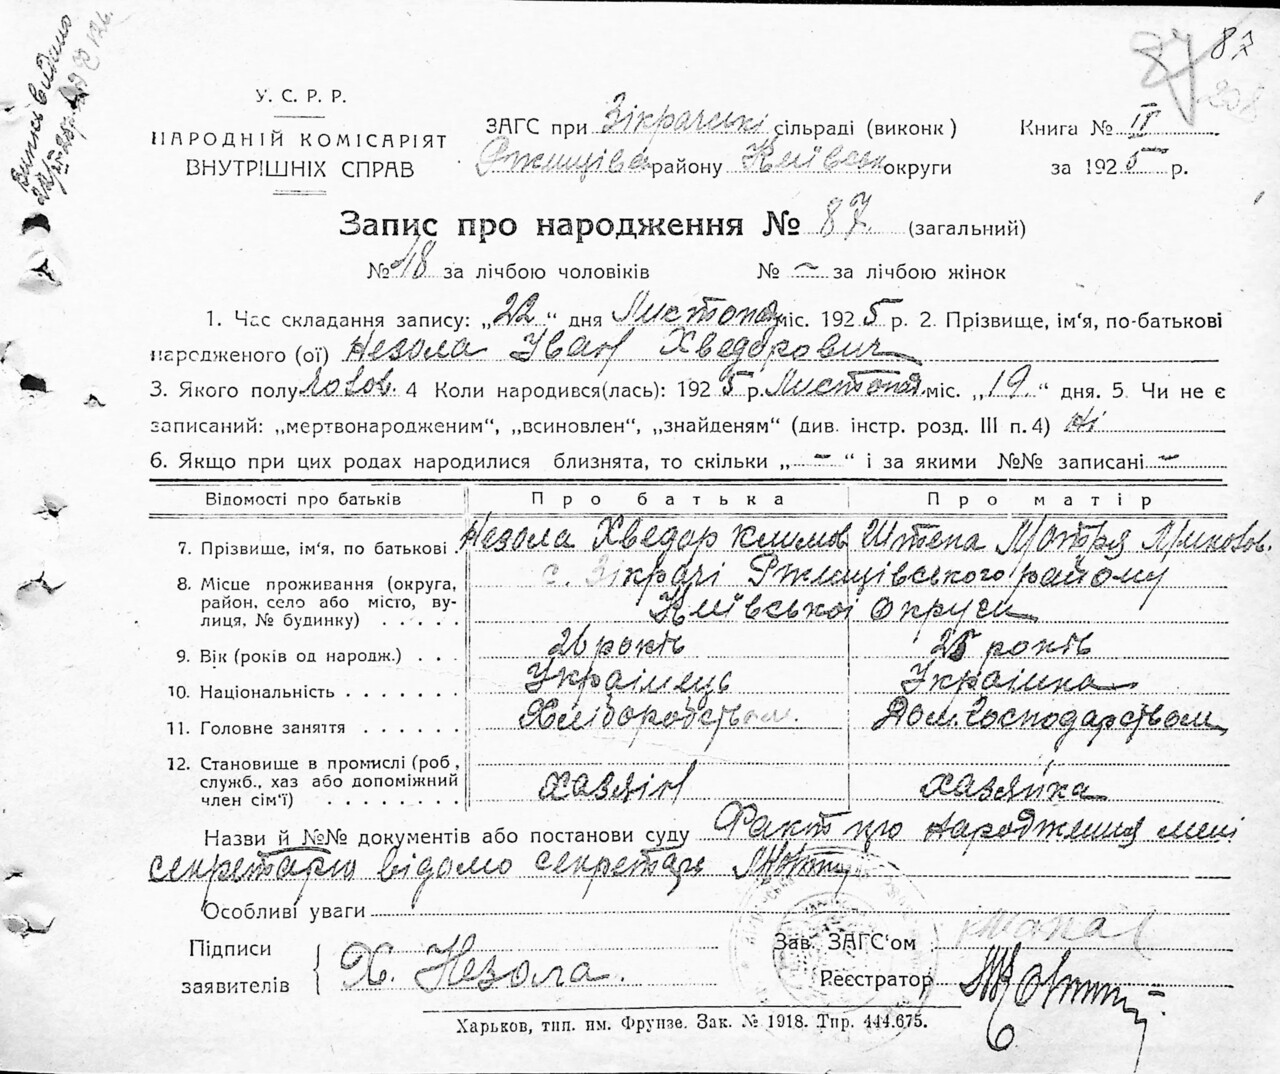 87
87
У. С. Р. Р.
НАРОДНІЙ КОМІСАРІЯТ
ВНУТРІШНІХ СПРАВ
ЗАГС при Зікрачські сільраді (виконк)
Ржищівс району Київськ округи
Книга № II
за 1925 р.
Запис про народження № 87. (загальний)
№ 18 за лічбою чоловіків № – за лічбою жінок
1. Час складання запису: „22“ дня Листопад міс. 1925 р. 2. Прізвище, ім‘я, по-батькові
народженого (ої) Незола Іван Хведорович
3. Якого полу Чолов. 4 Коли народився(лась): 1925 р. Листопад міс. „19.“ дня. 5. Чи не є
записаний: „мертвонародженим“, „всиновлен“, „знайденям“ (див. інстр. розд. III п. 4) Ні
6. Якщо при цих родах народилися близнята, то скільки „–“ і за якими №№ записані –
Відомості про батьків Про батька Про матір
7. Прізвище, ім‘я, по батькові Незола Хведор Климов Штепа Мотря Миколов.
8. Місце проживання (округа, район, село або місто, вулиця, № будинку) . . . . .
с. Зікрачі Ржищівського району
Київської округи
9. Вік (років од народж.) . . . 26 років 25 років
10. Національність . . . . . . . Українець Українка
11. Головне заняття . . . . . . Хліборобством. Дом. Господарством
12. Становище в промислі (роб, служб., хаз або допоміжний член сім‘ї) . . . . . . . . хазяін хазяйка
Назви й №№ документів або постанови суду Факт про народження мені
секретарю відомо секретар
Особливі уваги
Підписи
заявителів
Х. Незола.
Зав. ЗАГС‘ом
Реєстратор
Харьков, тип. им. Фрунзе. Зак. № 1918. Тир. 444.675.